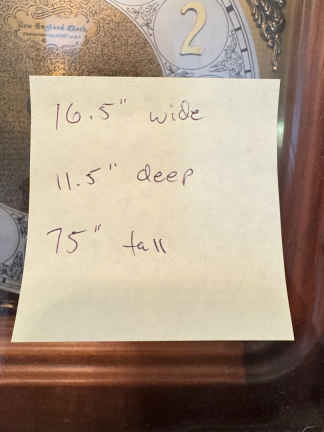 New England Clock
2
16.5" wide
11.5" deep
75" tall